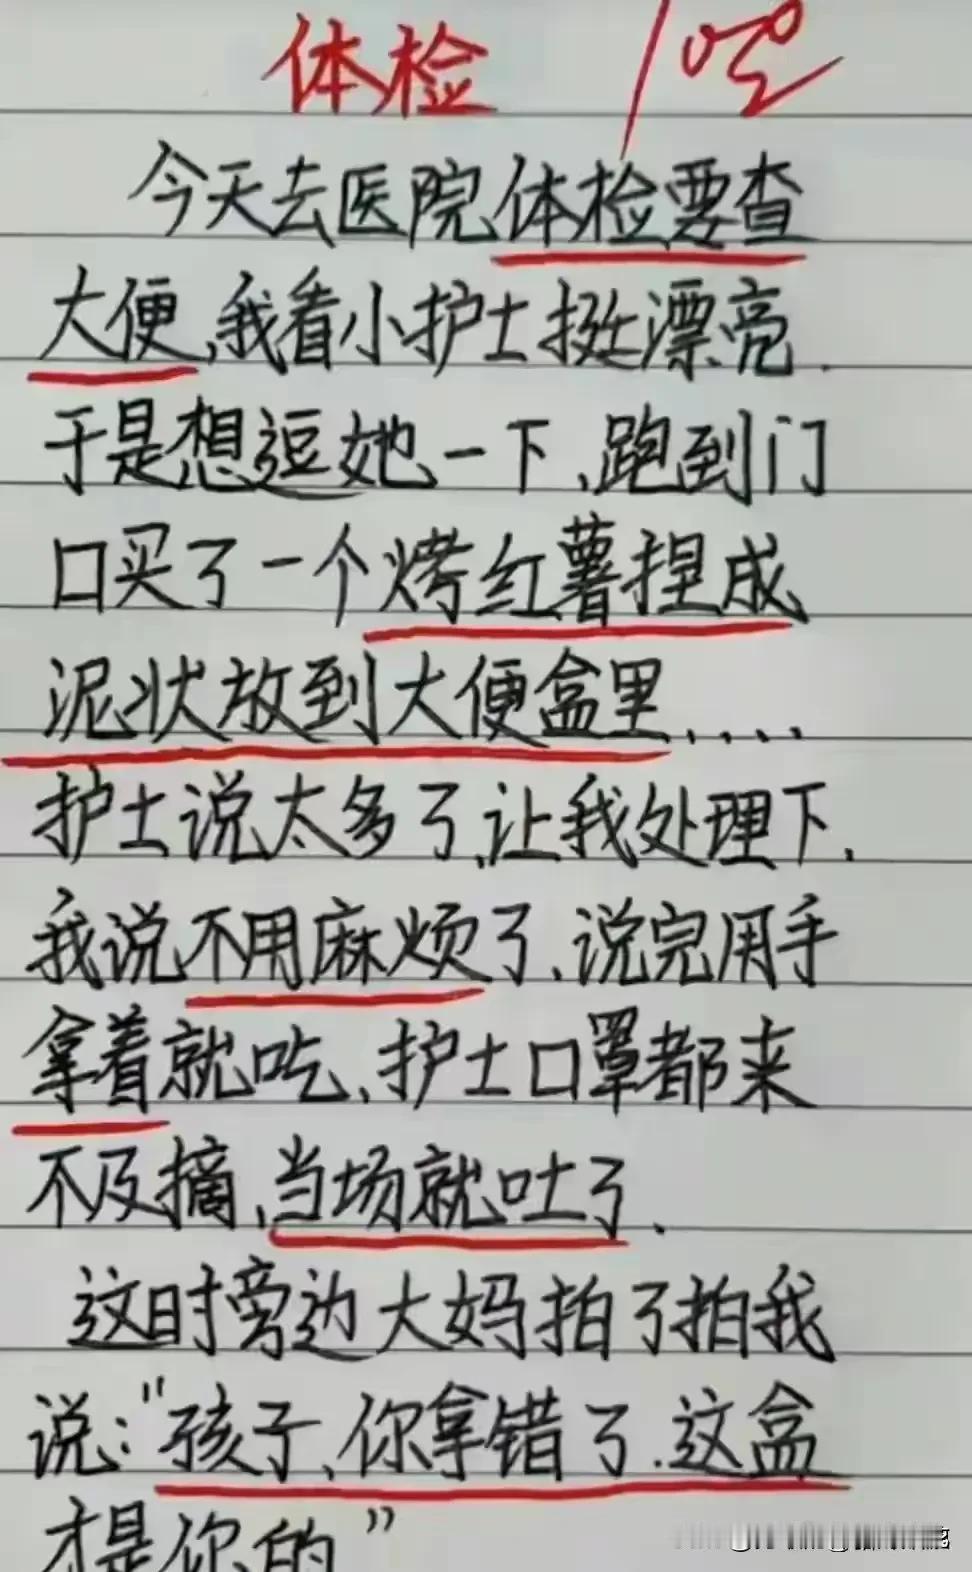 体检
今天去医院体检要查
大便,我看小护士挺漂亮.
于是想逗她一下,跑到门
口买了一个烤红薯捏成
泥状放到大便盒里....
护士说太多了,让我处理下.
我说不用麻烦了,说完用手
拿着就吃,护士口罩都来
不及摘,当场就吐了.
这时旁边大妈拍了拍我
说:"孩子,你拿错了.这盒
才是你的"